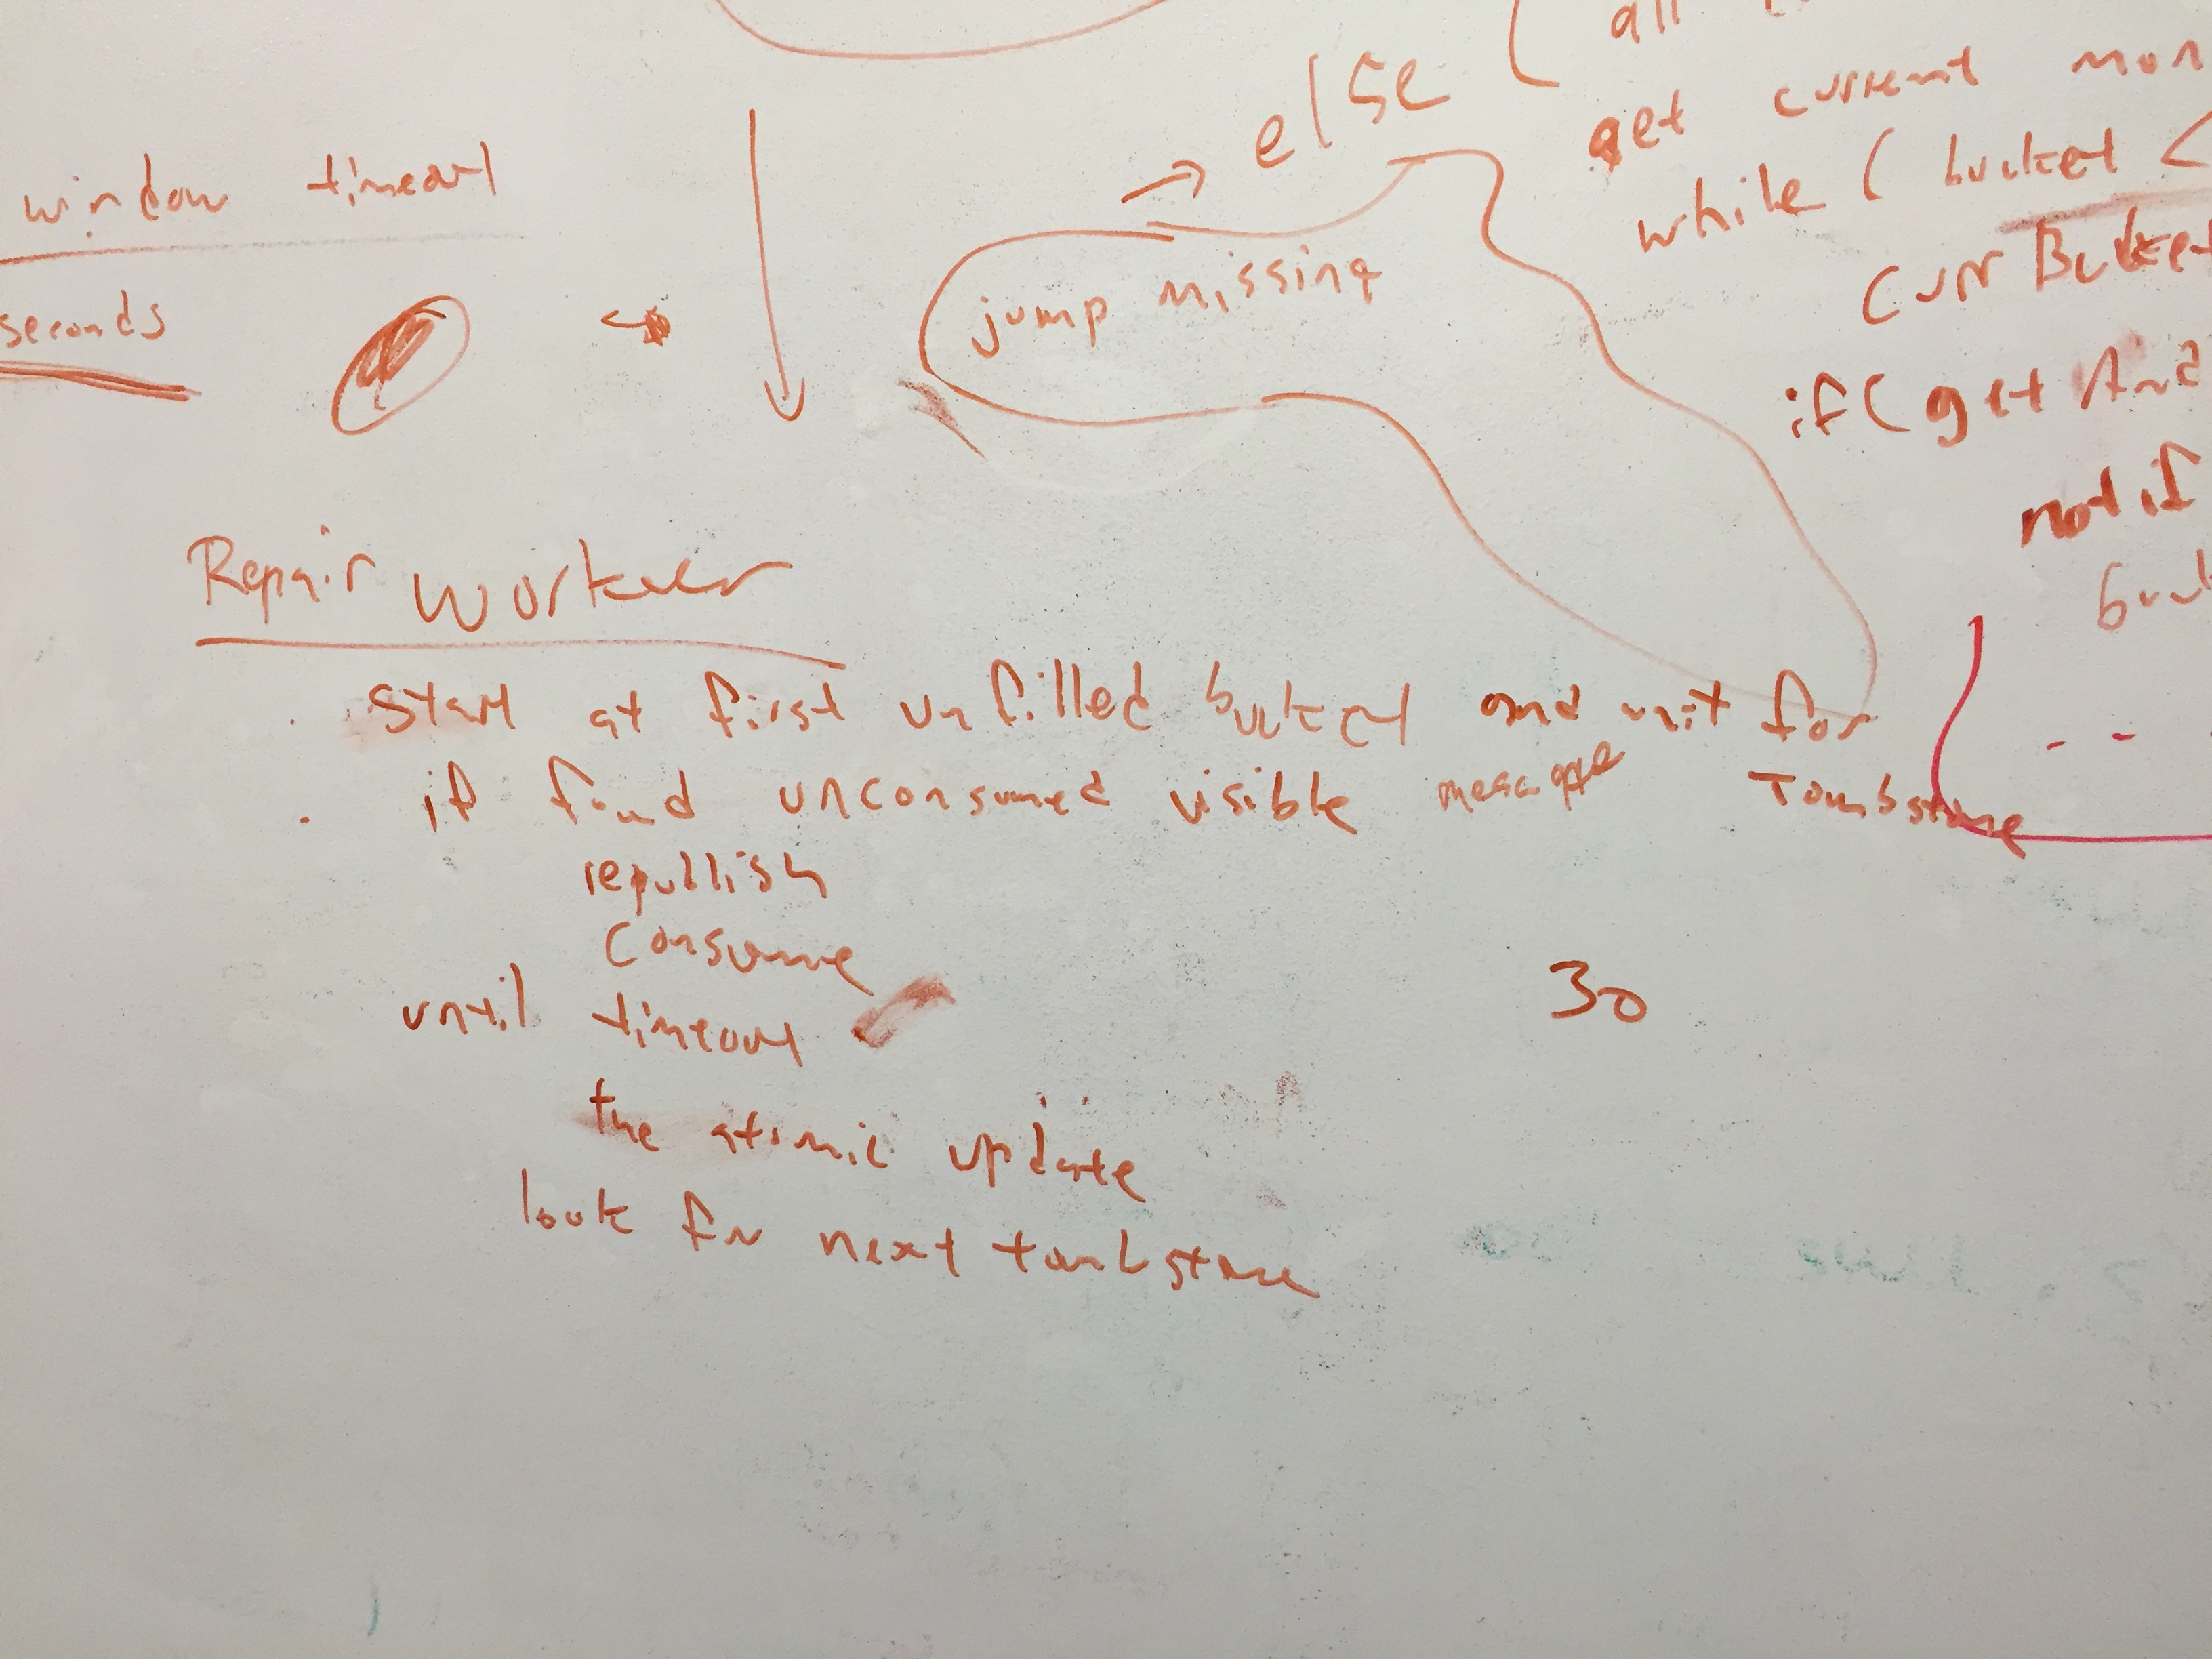 window timeout
seconds
else
jump missing
all
get current mon
while ( bucket <
Curr Bucket
if ( get And
notif
Repair Worker
. Start at first unfilled bucket and wait for Tombstone
. if found unconsumed visible message
republish
Consume
until timeout
the atomic update
look for next tombstone
30